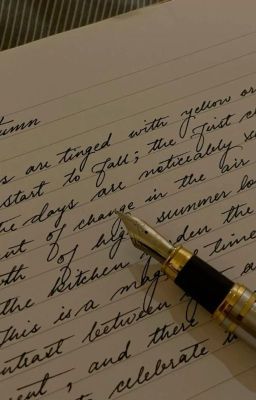 umn
s are tinged with yellow or
start to fall; the first c
the days are noticeably s
nt of change in the air
th of
summer
the kitchen
the
This is a
time
ontrast between
and there
celebrate